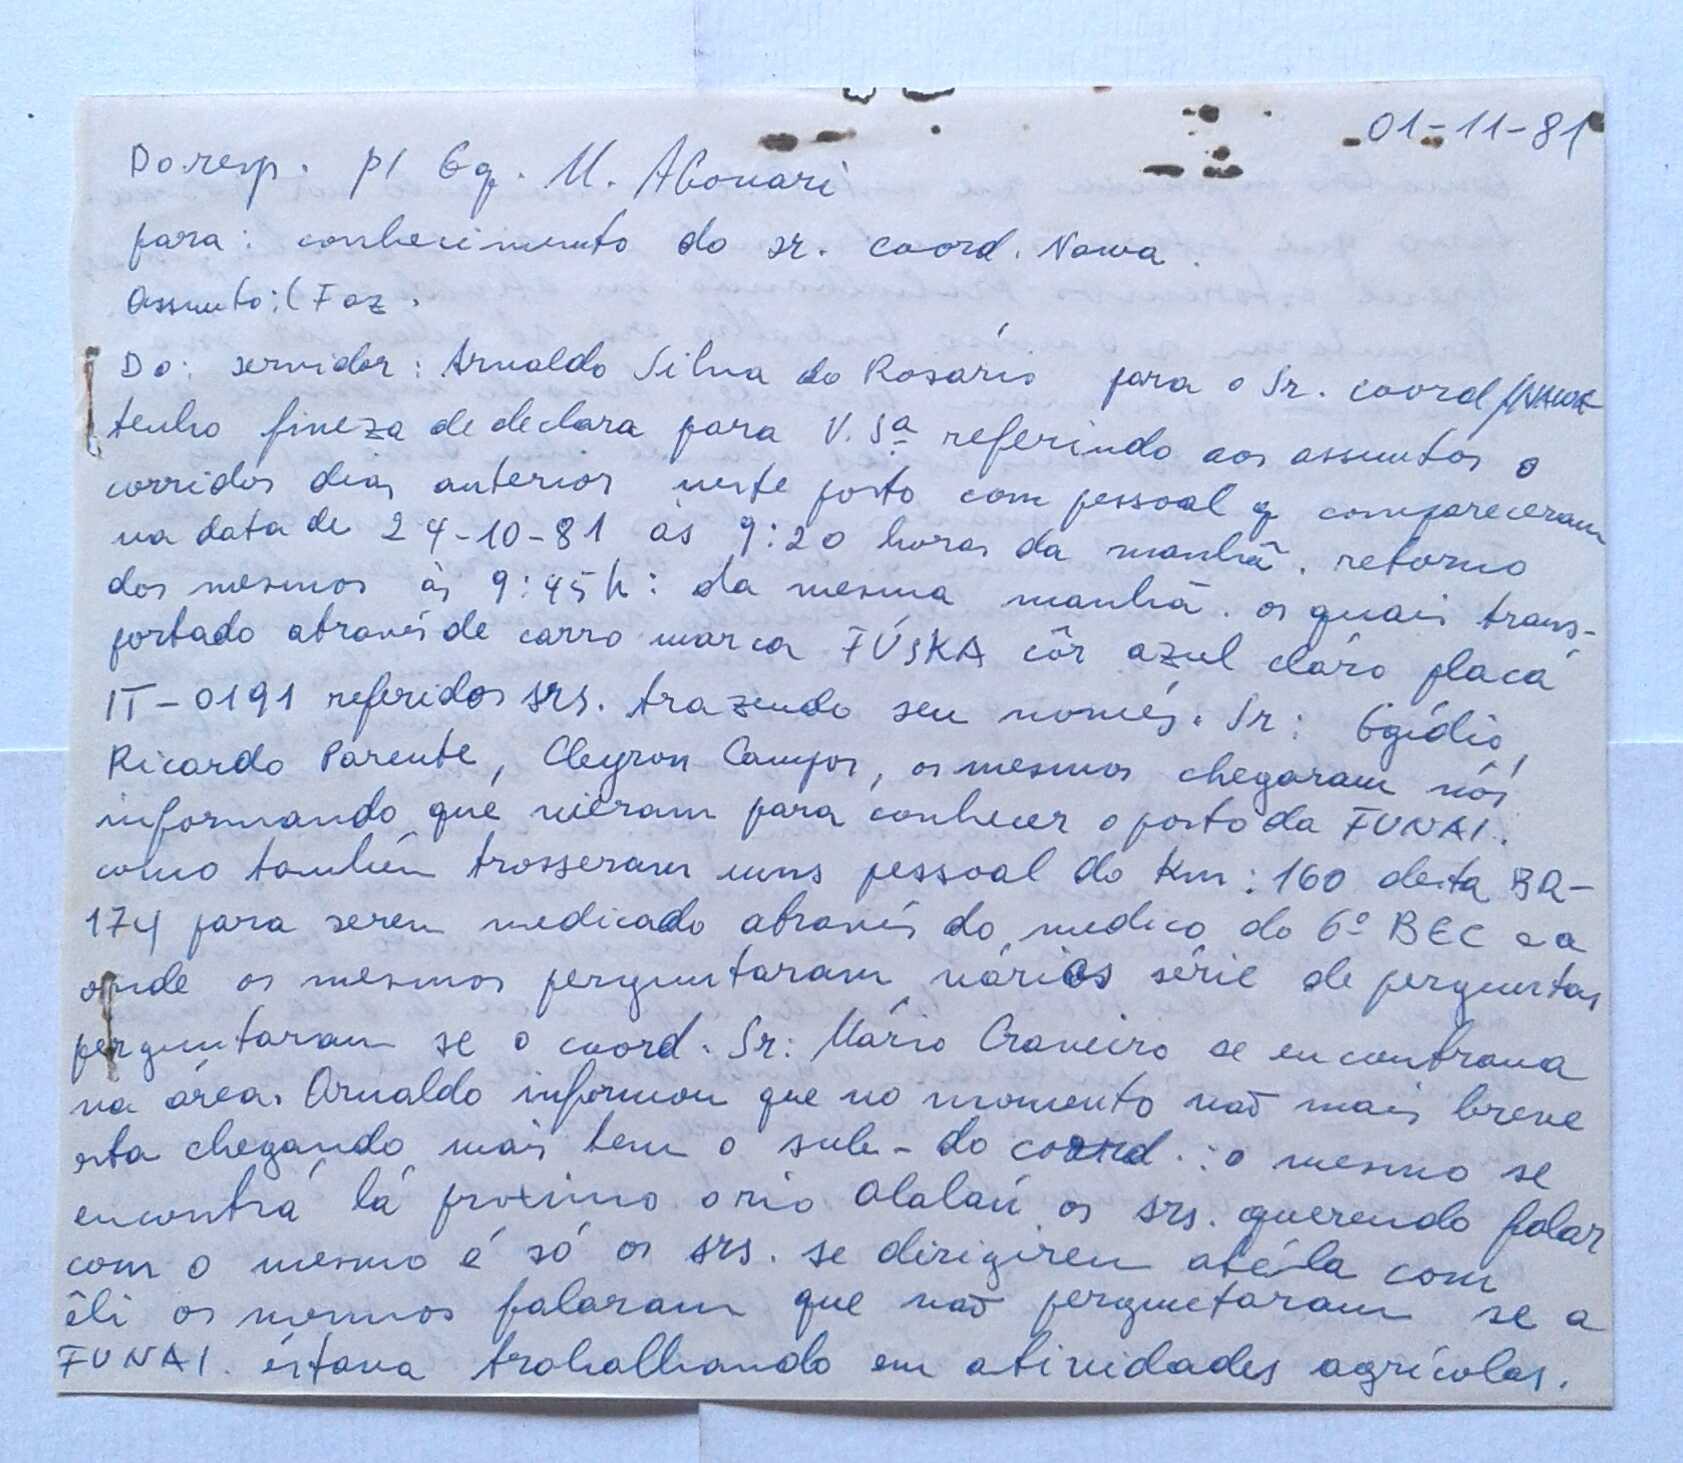 01-11-81
Do resp. p/ Eq. M. Abonari
para: conhecimento do sr. coord. Nawa.
Assunto: (Faz.
Do: servidor: Arnaldo Silva do Rosário para o Sr. coord/NAWA
tenho fineza de declara para V. Sª referindo aos assuntos o
corridos dias anterior neste posto com pessoal q compareceram
na data de 24-10-81 às 9:20 horas da manhã. retorno
dos mesmos às 9:45h: da mesma manhã. os quais trans-
portado através de carro marca FÚSKA côr azul cláro placa
IT-0191 referidos srs. trazendo seu només. Sr: Egídio,
Ricardo Parente, Cleyron Campos, os mesmos chegaram nós
informando que vieram para conhecer o posto da FUNAI.
como também trosseram uns pessoal do Km: 160 desta BR-
174 para serem medicado através do medico do 6º BEC e a
onde os mesmos perguntaram vários série de perguntas
perguntaram se o coord. Sr: Mário Craveiro se encontrava
na área. Arnaldo informou que no momento não mais breve
esta chegando mais tem o sub-do coord.: o mesmo se
encontrá lá proximo o rio Alalaú os srs. querendo falar
com o mesmo é só os srs. se dirigirem até la com
êli os mesmos falaram que não perguetaram se a
FUNAI. éstava trabalhando em atividades agrícolas.